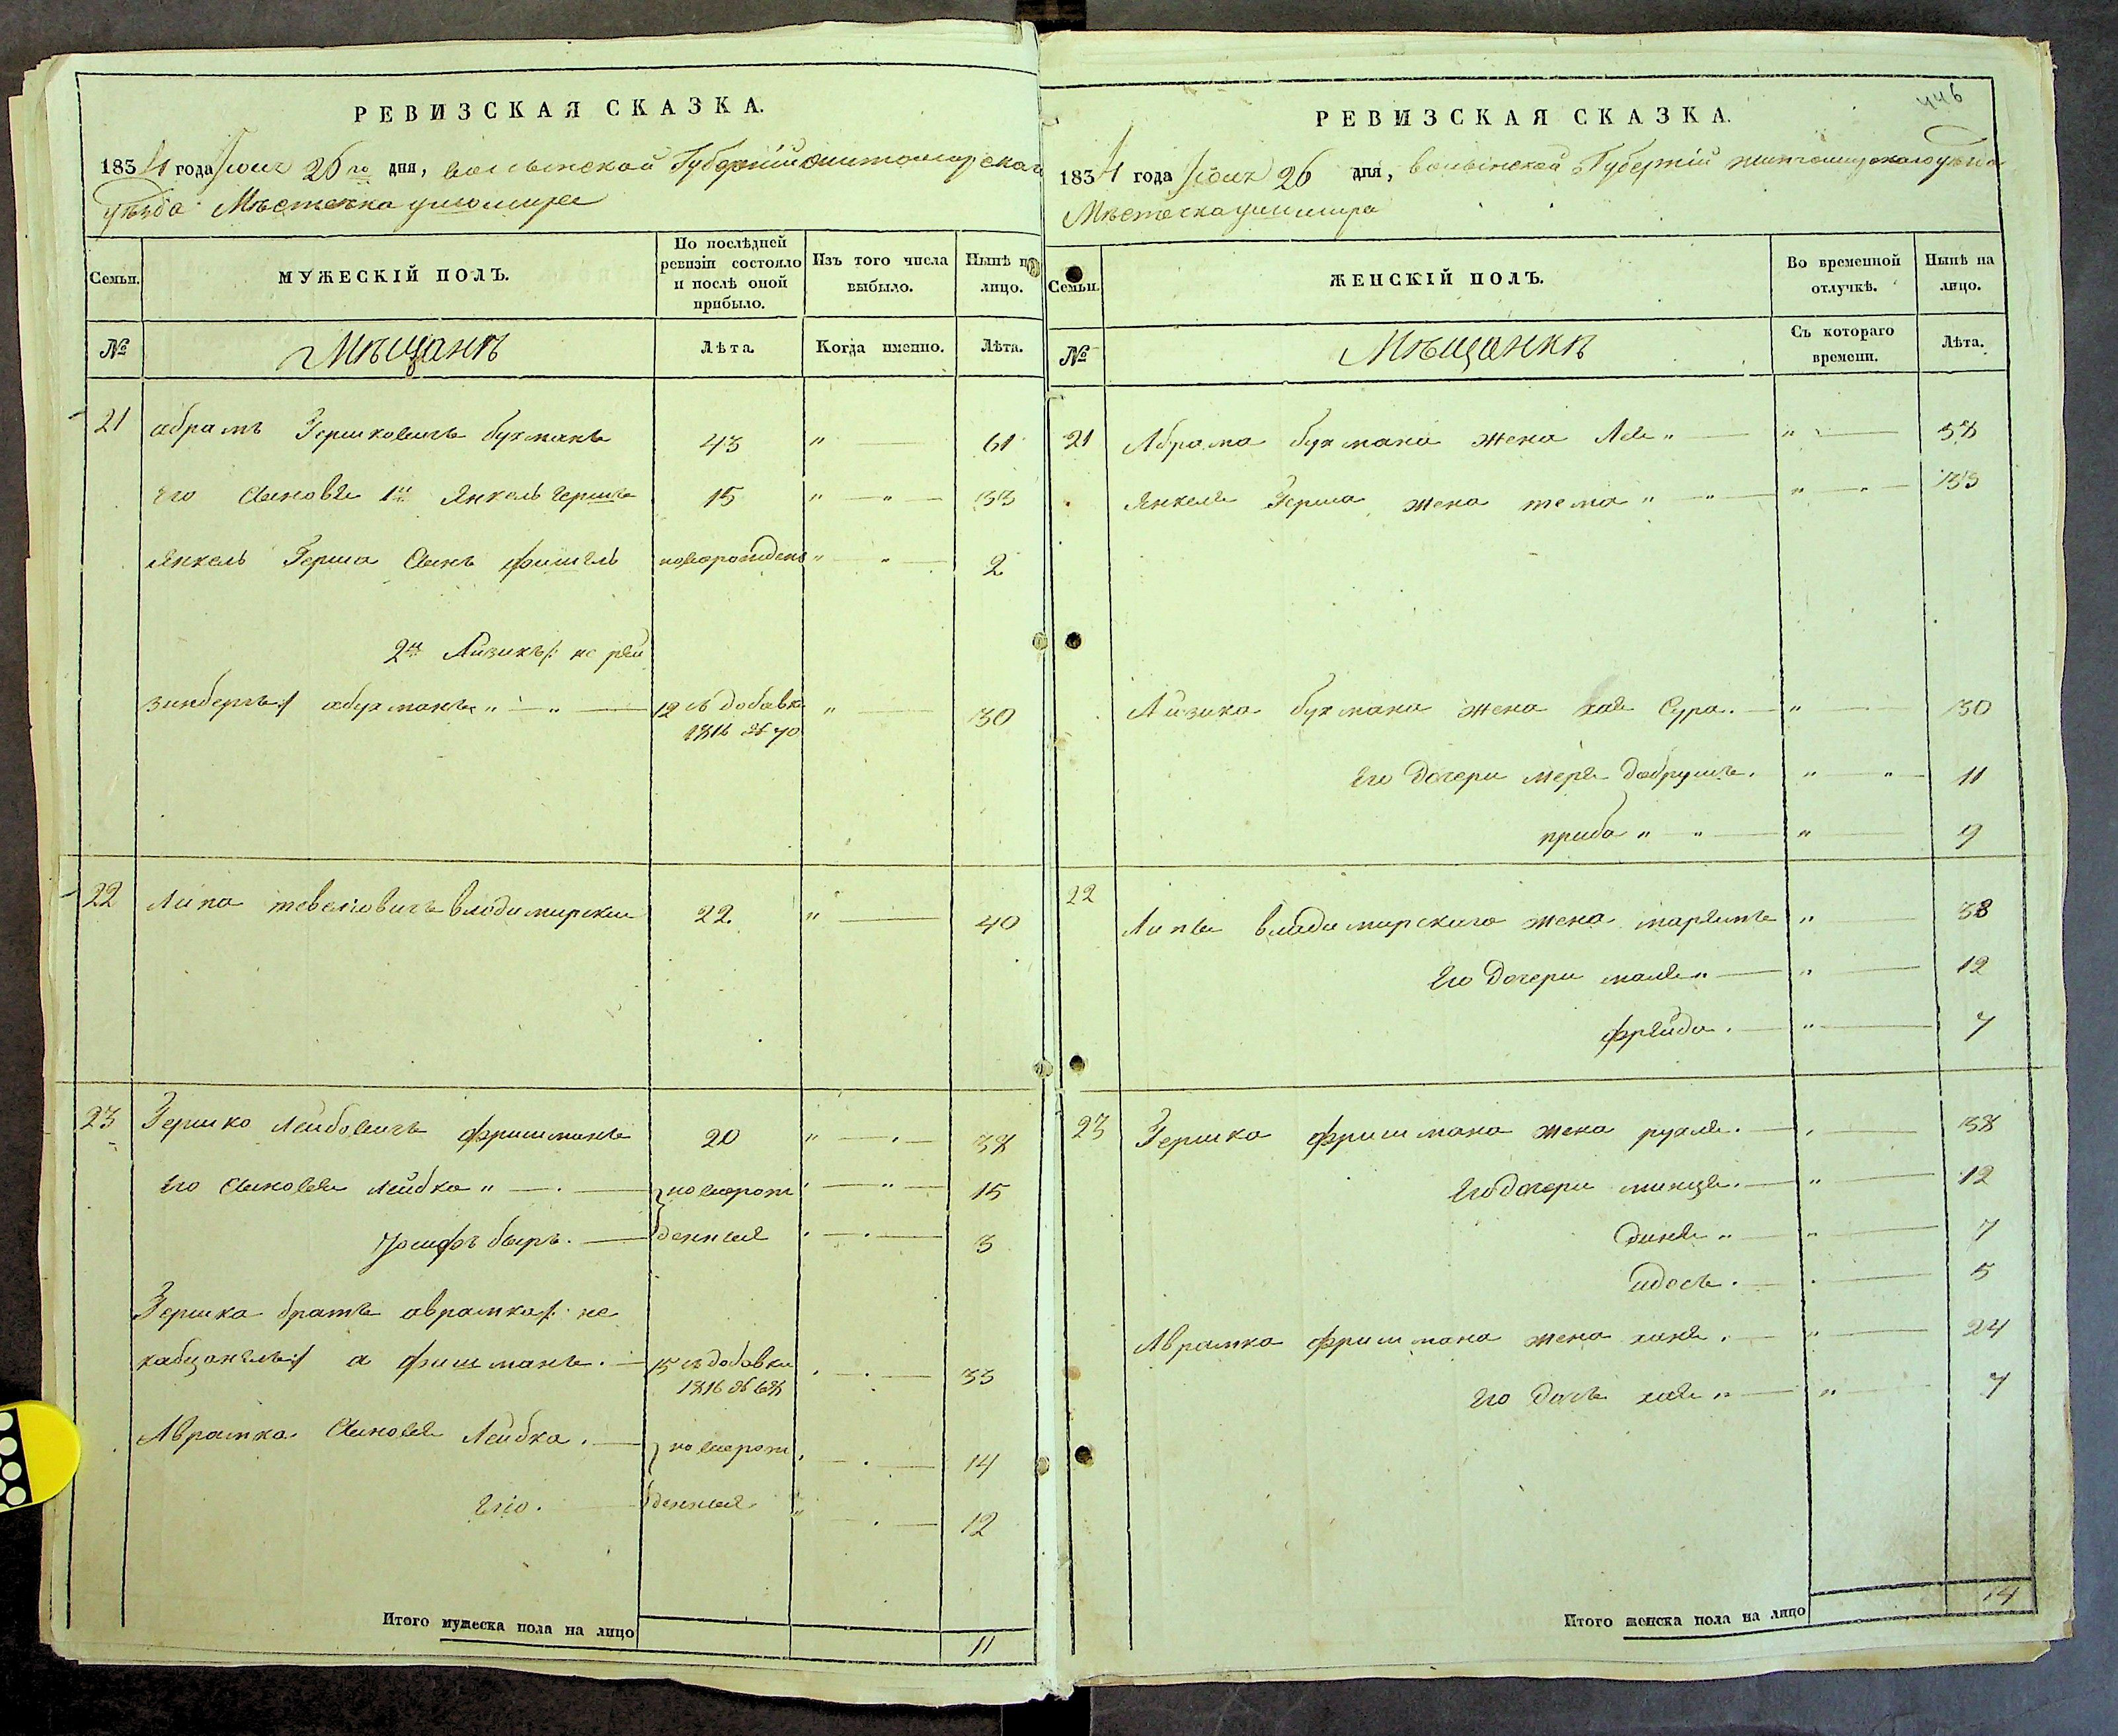 РЕВИЗСКАЯ СКАЗКА.
1834 года Іюня 26го дня, волынской Губерніи житомирскаго
уѣзда Мѣстечка ушомира
Семьи.
МУЖЕСКІЙ ПОЛЪ.
По послѣдней ревизіи состояло и послѣ оной прибыло.
Изъ того числа выбыло.
Нынѣ на лицо.
№
Мѣщанъ
Лѣта.
Когда именно.
Лѣта.
21 абрамъ Гершковичъ бухманъ 43 " 61
его Сыновья 1й Янкель герш 15 " " 33
Янкель Герша Сынъ фишель новорожденъ " " 2
2й Айзикъ /: не рей
зинбергъ :/ абухманъ " " 12 съ добавки " 30
1816 № 70
22 Липа тевелiовичъ владимирски 22 " 40
23 Гершко Лейбовичъ фришманъ 20 " 38
его Сыновья Лейбка " новорож " " 15
Іосифъ беръ. денныя 3
Гершка братъ аврамка /: не
кабцанъ :/ а фишманъ. 15 съ добавки 33
1816 № 68
Аврамка Сыновья Лейбка. новорож 14
денныя " 12
Итого мужеска пола на лицо 11
446
РЕВИЗСКАЯ СКАЗКА.
1834 года Іюня 26 дня, волынской Губерніи житомирскаго уѣзда
Мѣстечка ушомира
Семьи.
ЖЕНСКІЙ ПОЛЪ.
Во временной отлучкѣ.
Нынѣ на лицо.
№
Мѣщанкѣ
Съ котораго времени.
Лѣта.
21 Абрама бухмана жена Лея " " 58
Янкеля Герша жена тема " " " " 33
Айзика бухмана жена хая Сура. " 30
его дочери меря добрушъ. " " 11
приба " " " 9
22
Липы владимирскаго жена марямъ " 38
его дочери маля " " 12
фрейда. " 7
23 Гершка фришмана жена рухля. 38
его дочери минця. " 12
диня " " 7
идесъ. 5
Аврамка фришмана жена ханя. " 24
его дочь хая " " 7
Итого женска пола на лицо 14